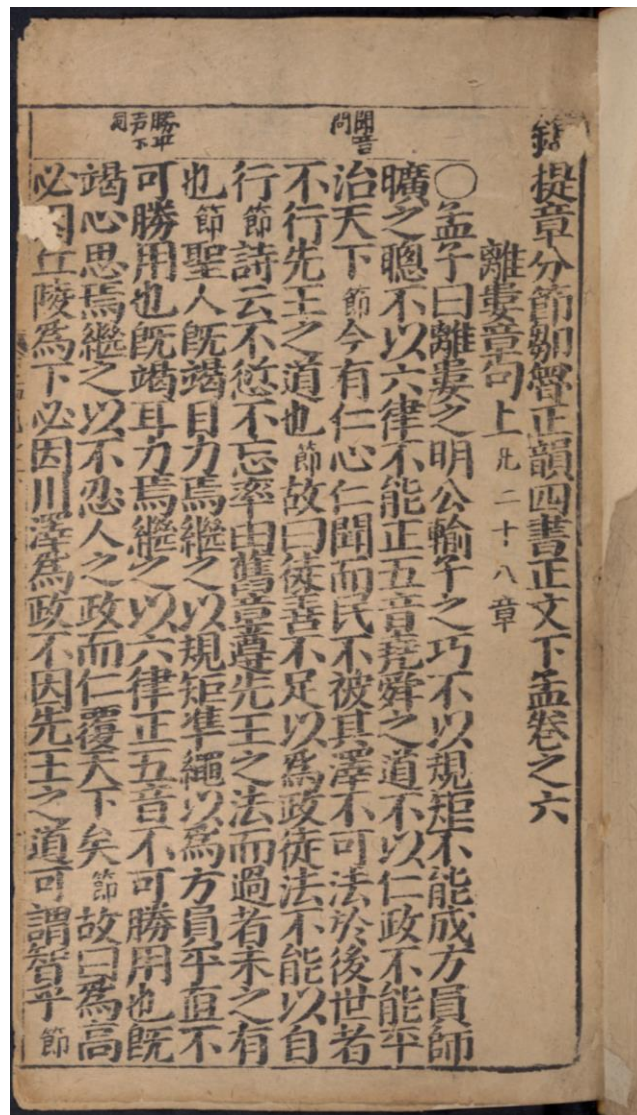 鐫提章分節句會正韻四書正文下孟卷之六
離婁章句上凡二十八章
〇孟子曰離婁之明公輸子之巧不以規矩不能成方員師
曠之聰不以六律不能正五音堯舜之道不以仁政不能平
聞音
問
治天下節今有仁心仁聞而民不被其澤不可法於後世者
不行先王之道也節故曰徒善不足以爲政徒法不能以自
行節詩云不愆不忘率由舊章遵先王之法而過者未之有
也節聖人既竭目力焉繼之以規矩準繩以爲方員平直不
勝平
声下
同
可勝用也既竭耳力焉繼之以六律正五音不可勝用也既
竭心思焉繼之以不忍人之政而仁覆天下矣節故曰爲高
必因丘陵爲下必因川澤爲政不因先王之道可謂智乎節